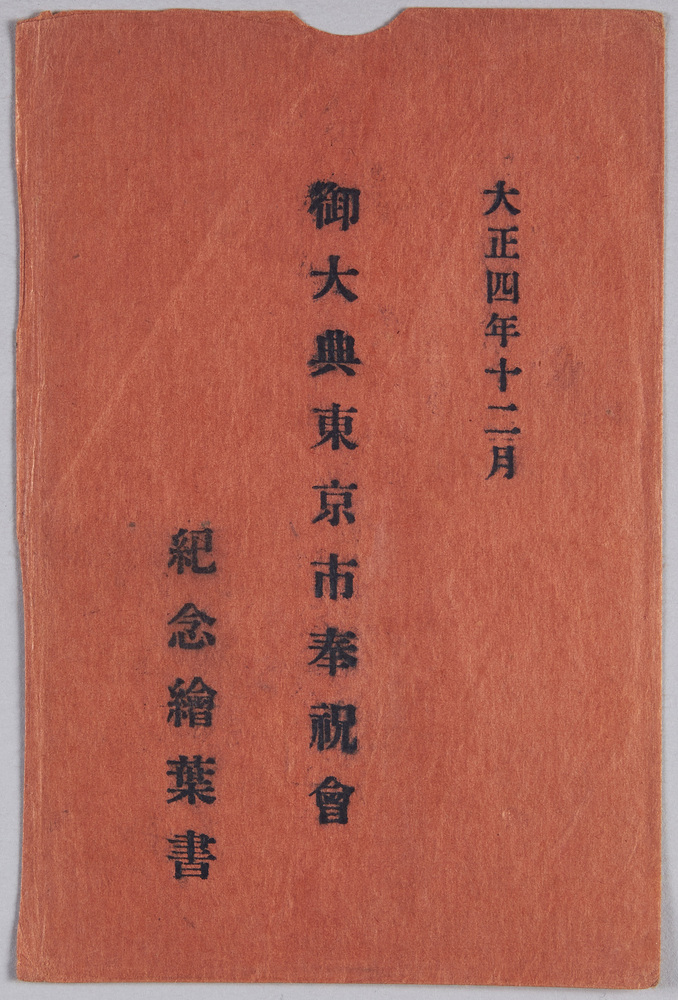 大正四年十二月
御大典東京市奉祝會
紀念繪葉書